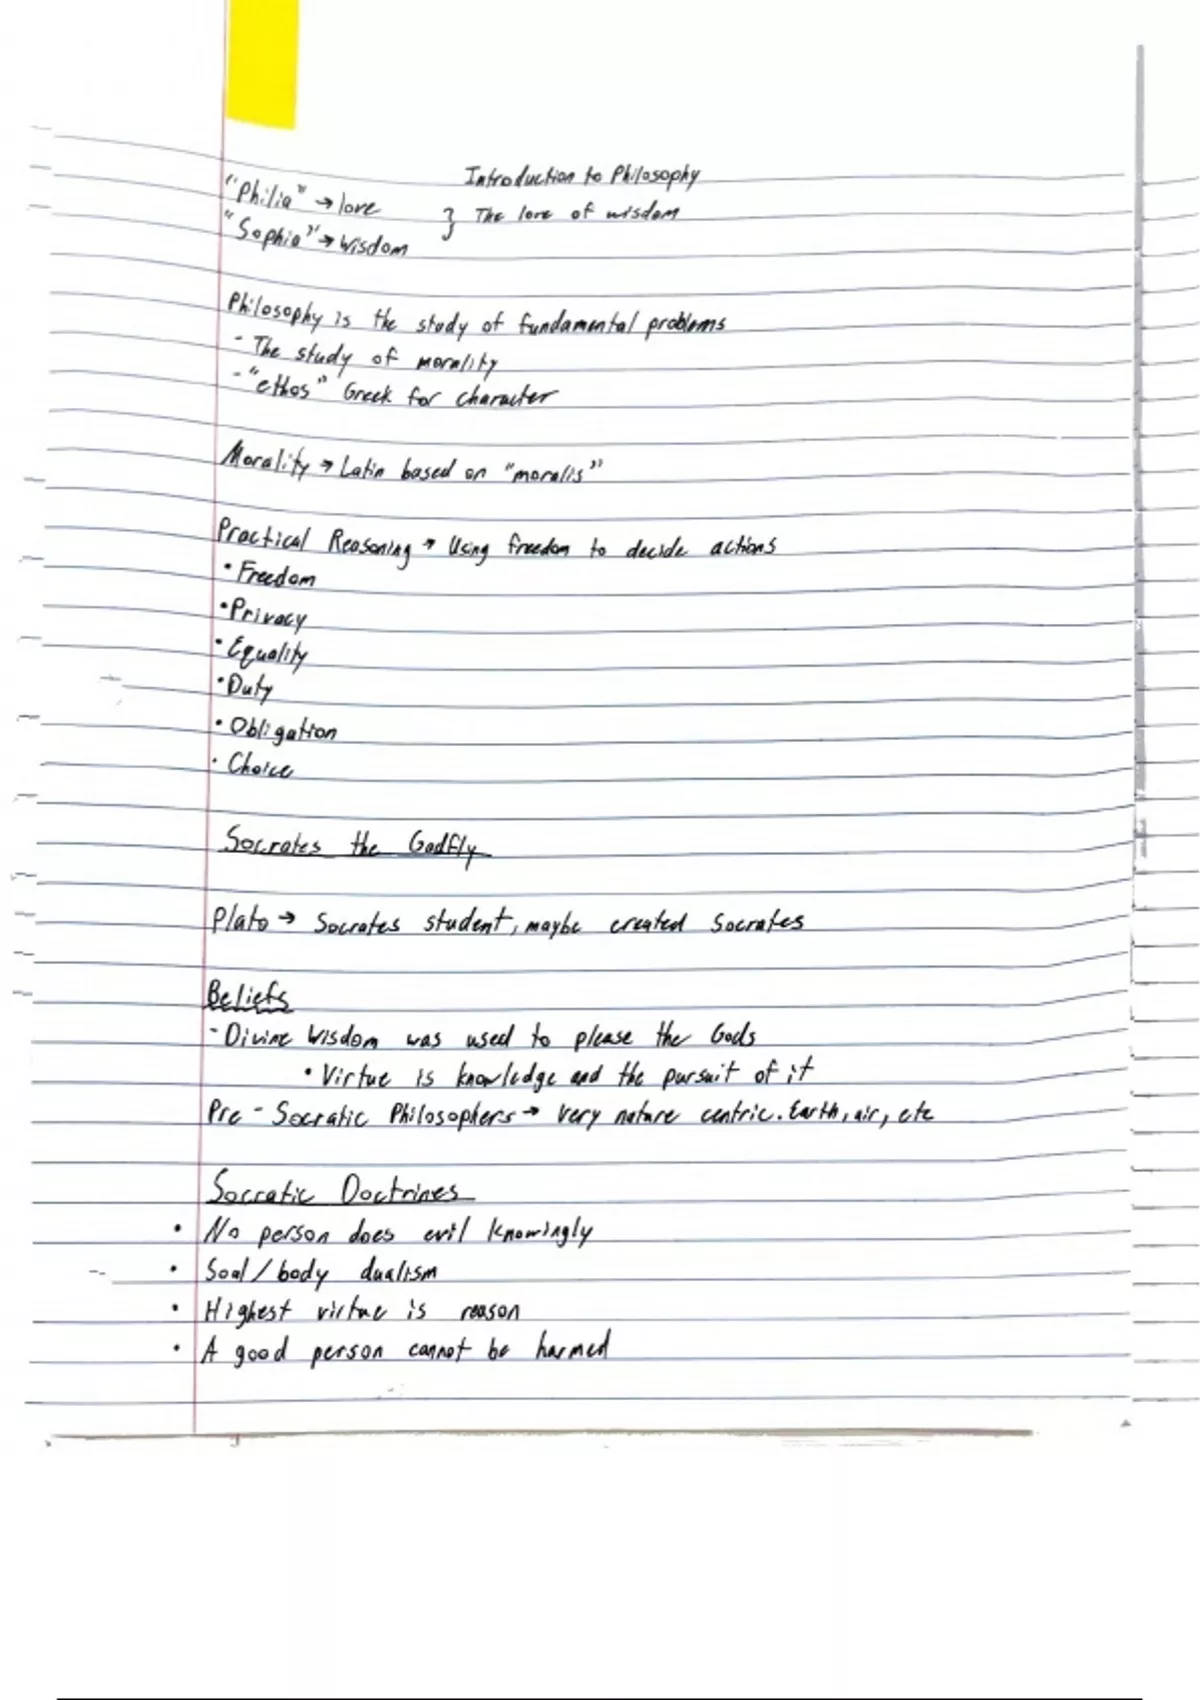 Introduction to Philosophy
"Philia" → love
} The love of wisdom
"Sophia" → Wisdom
Philosophy is the study of fundamental problems
- The study of morality
- "ethos" Greek for character
Morality → Latin based on "moralis"
Practical Reasoning → Using freedom to decide actions
• Freedom
• Privacy
• Equality
• Duty
• Obligation
• Choice
Socrates the Gadfly
Plato → Socrates student, maybe created Socrates
Beliefs
- Divine Wisdom was used to please the Gods
• Virtue is knowledge and the pursuit of it
Pre-Socratic Philosophers → Very nature centric. Earth, air, etc
Socratic Doctrines
• No person does evil knowingly
• Soal/body dualism
• Highest virtue is reason
• A good person cannot be harmed